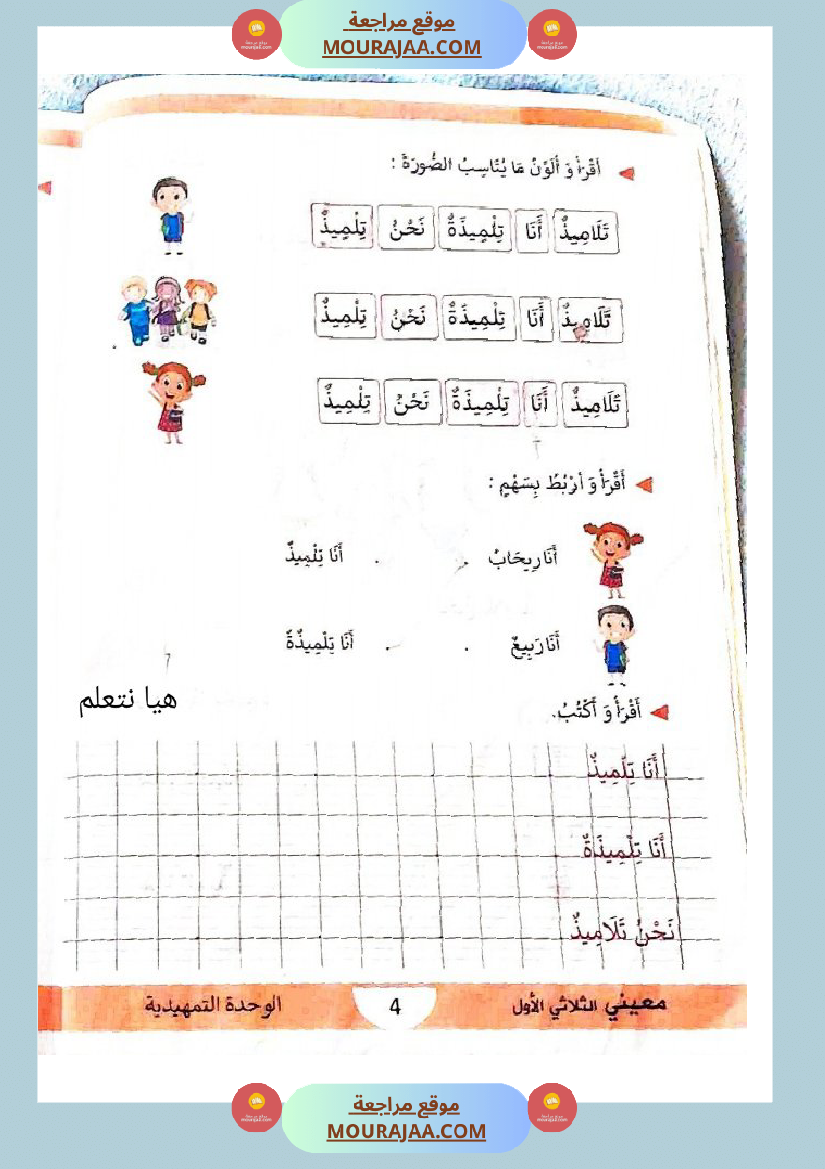 موقع مراجعة
MOURAJAA.COM
أَقْرَأُ وَ أُلَوِّنُ مَا يُنَاسِبُ الصُّورَةَ :
تَلَامِيذٌ أَنَا تِلْمِيذَةٌ نَحْنُ تِلْمِيذٌ
تَلَامِيذٌ أَنَا تِلْمِيذَةٌ نَحْنُ تِلْمِيذٌ
تَلَامِيذٌ أَنَا تِلْمِيذَةٌ نَحْنُ تِلْمِيذٌ
أَقْرَأُ وَ أَرْبُطُ بِسَهْمٍ :
أَنَا رِيحَابُ . . أَنَا تِلْمِيذٌ
أَنَا رَبِيعٌ . . أَنَا تِلْمِيذَةٌ
هيا نتعلم
أَقْرَأُ وَ أَكْتُبُ.
أَنَا تِلْمِيذٌ
أَنَا تِلْمِيذَةٌ
نَحْنُ تَلَامِيذٌ
معيني الثلاثي الأول 4 الوحدة التمهيدية
موقع مراجعة
MOURAJAA.COM